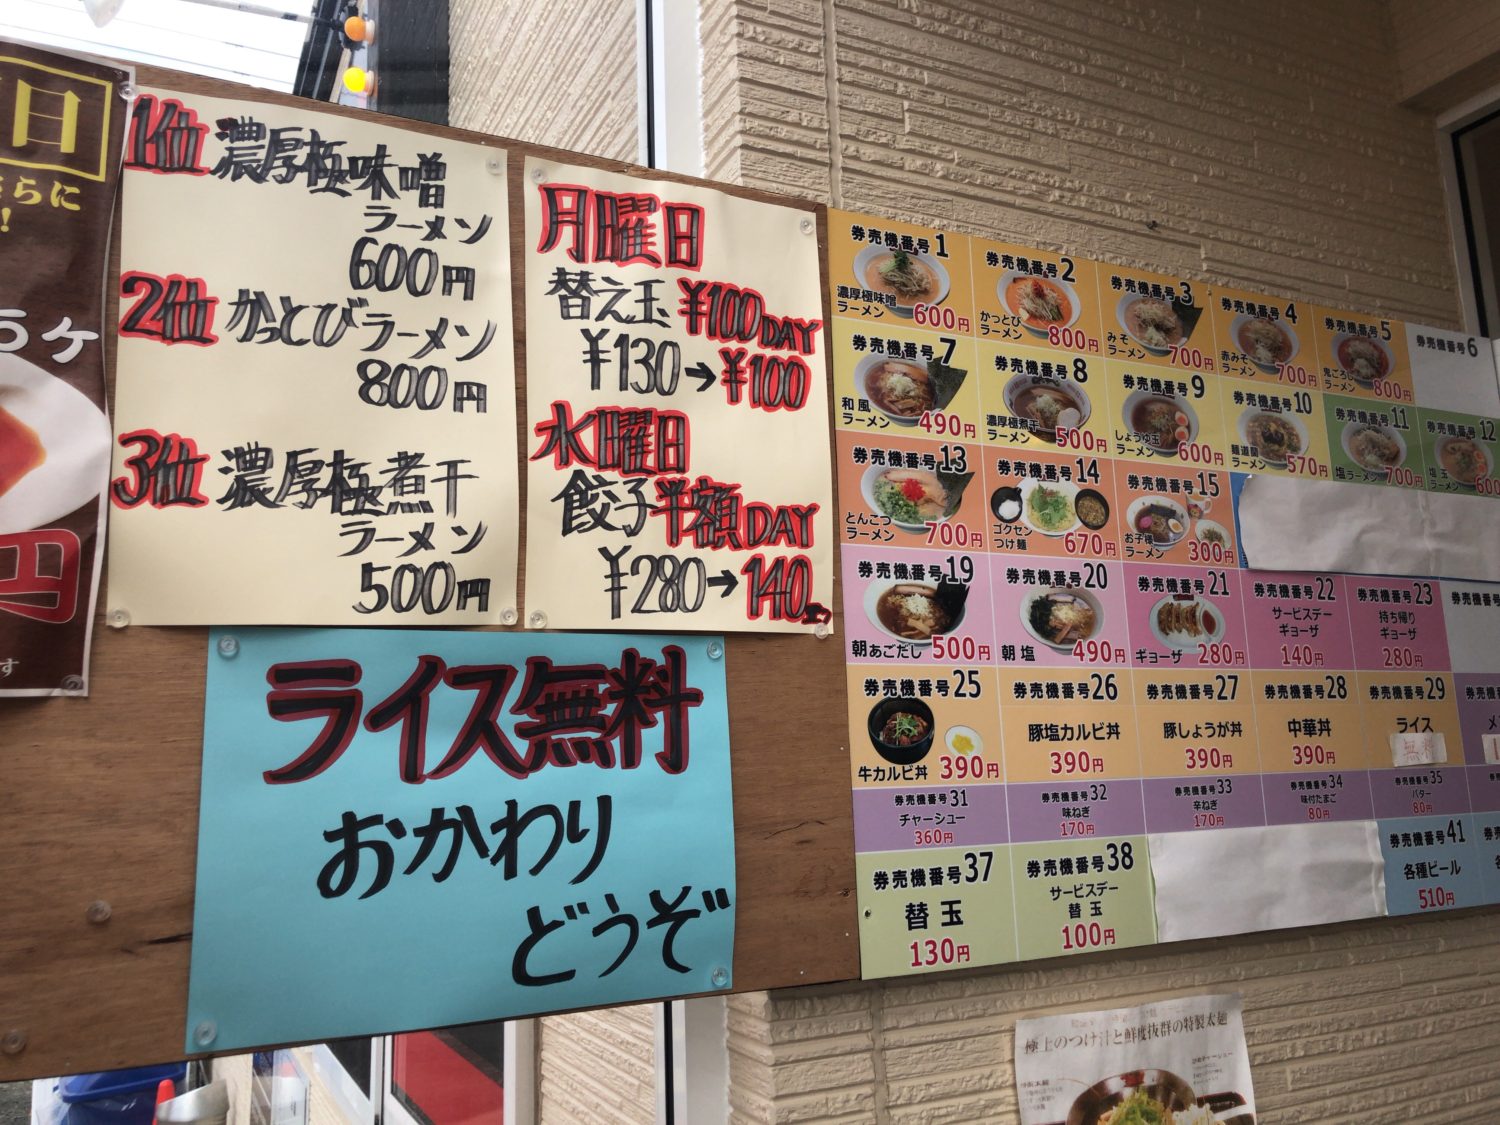 日
さらに
!
円
す
1位 濃厚極味噌
ラーメン
600円
2位 かっとびラーメン
800円
3位 濃厚極煮干
ラーメン
500円
月曜日
替え玉 ¥100DAY
¥130→¥100
水曜日
餃子半額DAY
¥280→140
ライス無料
おかわり
どうぞ
券売機番号 1
濃厚極味噌
ラーメン
600円
券売機番号 2
かっとび
ラーメン
800円
券売機番号 3
みそ
ラーメン
700円
券売機番号 4
赤みそ
ラーメン
700円
券売機番号 5
鬼ごろし
ラーメン
800円
券売機番号 6
券売機番号 7
和風
ラーメン
490円
券売機番号 8
濃厚極煮干
ラーメン
500円
券売機番号 9
しょうゆ玉
ラーメン
600円
券売機番号 10
麺道関
ラーメン
570円
券売機番号 11
塩ラーメン
700円
券売機番号 12
塩玉
ラーメン
600
券売機番号 13
とんこつ
ラーメン
700円
券売機番号 14
ゴクセン
つけ麺
670円
券売機番号 15
お子様
ラーメン
300円
券売機番号 19
朝あごだし
500円
券売機番号 20
朝塩
490円
券売機番号 21
ギョーザ
280円
券売機番号 22
サービスデー
ギョーザ
140円
券売機番号 23
持ち帰り
ギョーザ
280円
券売機番
券売機番号 25
牛カルビ丼
390円
券売機番号 26
豚塩カルビ丼
390円
券売機番号 27
豚しょうが丼
390円
券売機番号 28
中華丼
390円
券売機番号 29
ライス
無料
券売機
メ
券売機番号 31
チャーシュー
360円
券売機番号 32
味ねぎ
170円
券売機番号 33
辛ねぎ
170円
券売機番号 34
味付たまご
80円
券売機番号 35
バター
80円
券売機番号 37
替玉
130円
券売機番号 38
サービスデー
替玉
100円
券売機番号 41
各種ビール
510円
極上のつけ汁と鮮度抜群の特製太麺